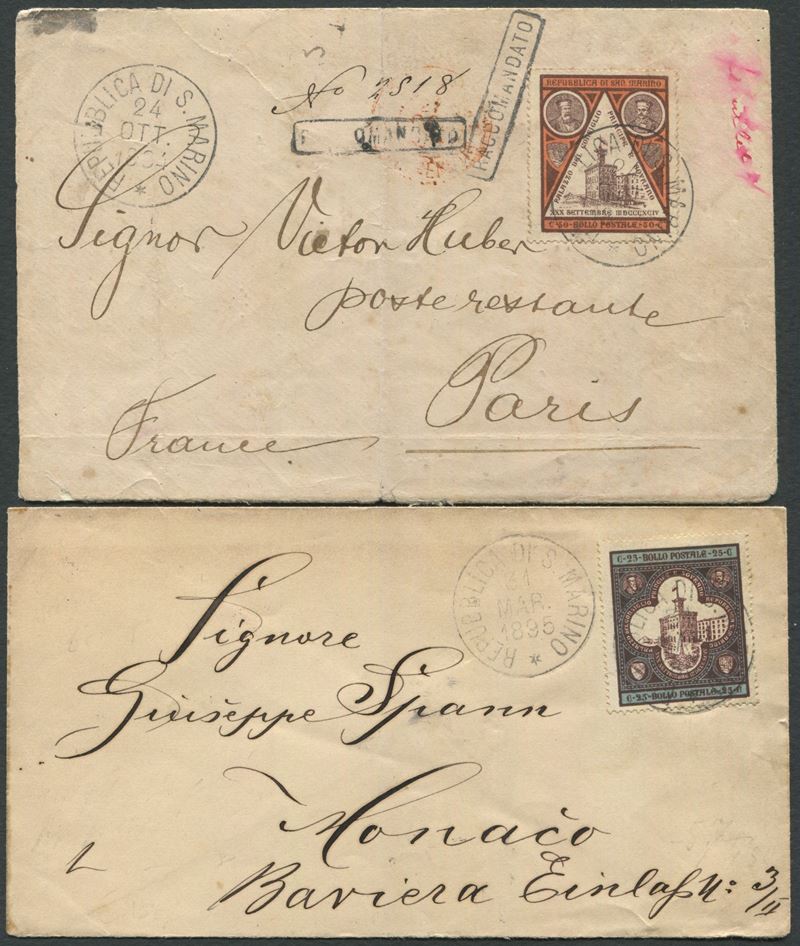 REPUBBLICA DI S. MARINO
24
OTT.
No 2818
RACCOMANDATO
RACCOMANDATO
REPUBBLICA DI SAN MARINO
PALAZZO DEL CONSIGLIO PRINCIPE E SOVRANO
XXX SETTEMBRE MDCCCXCIV
C·50·BOLLO POSTALE·50·C
Signor Victor Huber
poste restante
Paris
France
REPUBBLICA DI S. MARINO
31
MAR.
1895
C·25·BOLLO POSTALE·25·C
C·25·BOLLO POSTALE·25·C
Signore
Giuseppe Spann
Monaco
Baviera Einlaß No: 3/II